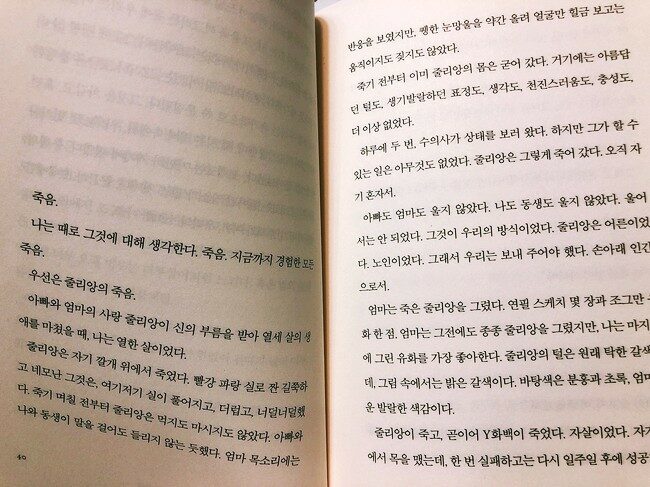 죽음.
나는 때로 그것에 대해 생각한다. 죽음. 지금까지 경험한 모든
죽음.
우선은 줄리앙의 죽음.
아빠와 엄마의 사랑 줄리앙이 신의 부름을 받아 열세 살의 생
애를 마쳤을 때, 나는 열한 살이었다.
줄리앙은 자기 깔개 위에서 죽었다. 빨강 파랑 실로 짠 길쭉하
고 네모난 그것은, 여기저기 실이 풀어지고, 더럽고, 너덜너덜했
다. 죽기 며칠 전부터 줄리앙은 먹지도 마시지도 않았다. 아빠와
나와 동생이 말을 걸어도 들리지 않는 듯했다. 엄마 목소리에는
40
반응을 보였지만, 퀭한 눈망울을 약간 올려 얼굴만 힐금 보고는
움직이지도 짖지도 않았다.
죽기 전부터 이미 줄리앙의 몸은 굳어 갔다. 거기에는 아름답
던 털도, 생기발랄하던 표정도, 생각도, 천진스러움도, 충성도,
더 이상 없었다.
하루에 두 번, 수의사가 상태를 보러 왔다. 하지만 그가 할 수
있는 일은 아무것도 없었다. 줄리앙은 그렇게 죽어 갔다. 오직 자
기 혼자서.
아빠도 엄마도 울지 않았다. 나도 동생도 울지 않았다. 울어
서는 안 되었다. 그것이 우리의 방식이었다. 줄리앙은 어른이었
다. 노인이었다. 그래서 우리는 보내 주어야 했다. 손아래 인간
으로서.
엄마는 죽은 줄리앙을 그렸다. 연필 스케치 몇 장과 조그만
화 한 점. 엄마는 그전에도 종종 줄리앙을 그렸지만, 나는 마지
에 그린 유화를 가장 좋아한다. 줄리앙의 털은 원래 탁한 갈색
데, 그림 속에서는 밝은 갈색이다. 바탕색은 분홍과 초록, 엄마
운 발랄한 색감이다.
줄리앙이 죽고, 곧이어 Y화백이 죽었다. 자살이었다. 자기
에서 목을 맸는데, 한 번 실패하고는 다시 일주일 후에 성공